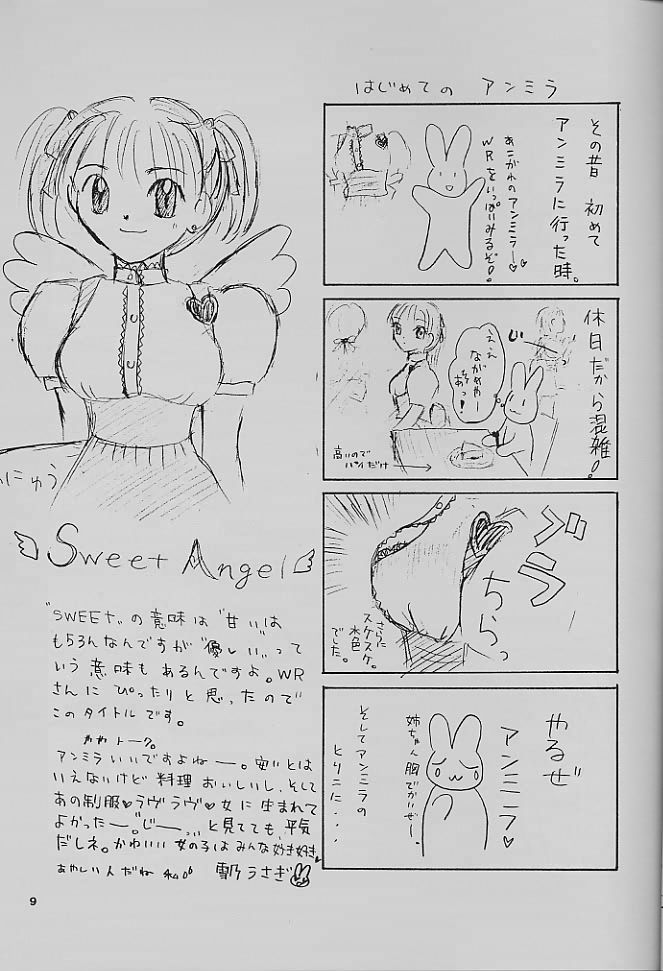 はじめての アンミラ
その昔 初めて
アンミラに行った時。
あこがれのアンミラー♡♡
WRをいっぱいみるぞ!
休日だから混雑!
じー
ええ
ながめやー
あっ!
高いので
パイだけ
ブラ
ちらっ
さらに
スケスケ。
水色
でした。
やるぜ
アンミラ♡
姉ちゃん
胸でかいぜー。
そしてアンミラの
とりこに・・・
にゅう
Sweet Angel
"SWEET"の意味は"甘い"は
もちろんなんですが"優しい"って
いう意味もあるんですよ。WR
さんにぴったりと思ったので
このタイトルです。
ややトーク。
アンミラいいですよねー。安いとは
いえないけど料理おいしいし、そして
あの制服♡ラヴラヴ♡女に生まれて
よかったー。じーっ、と見てても、平気
だしネ。かわいい女の子はみんな好き好き♥
あやしい人だね 私。
雪乃うさぎ
9